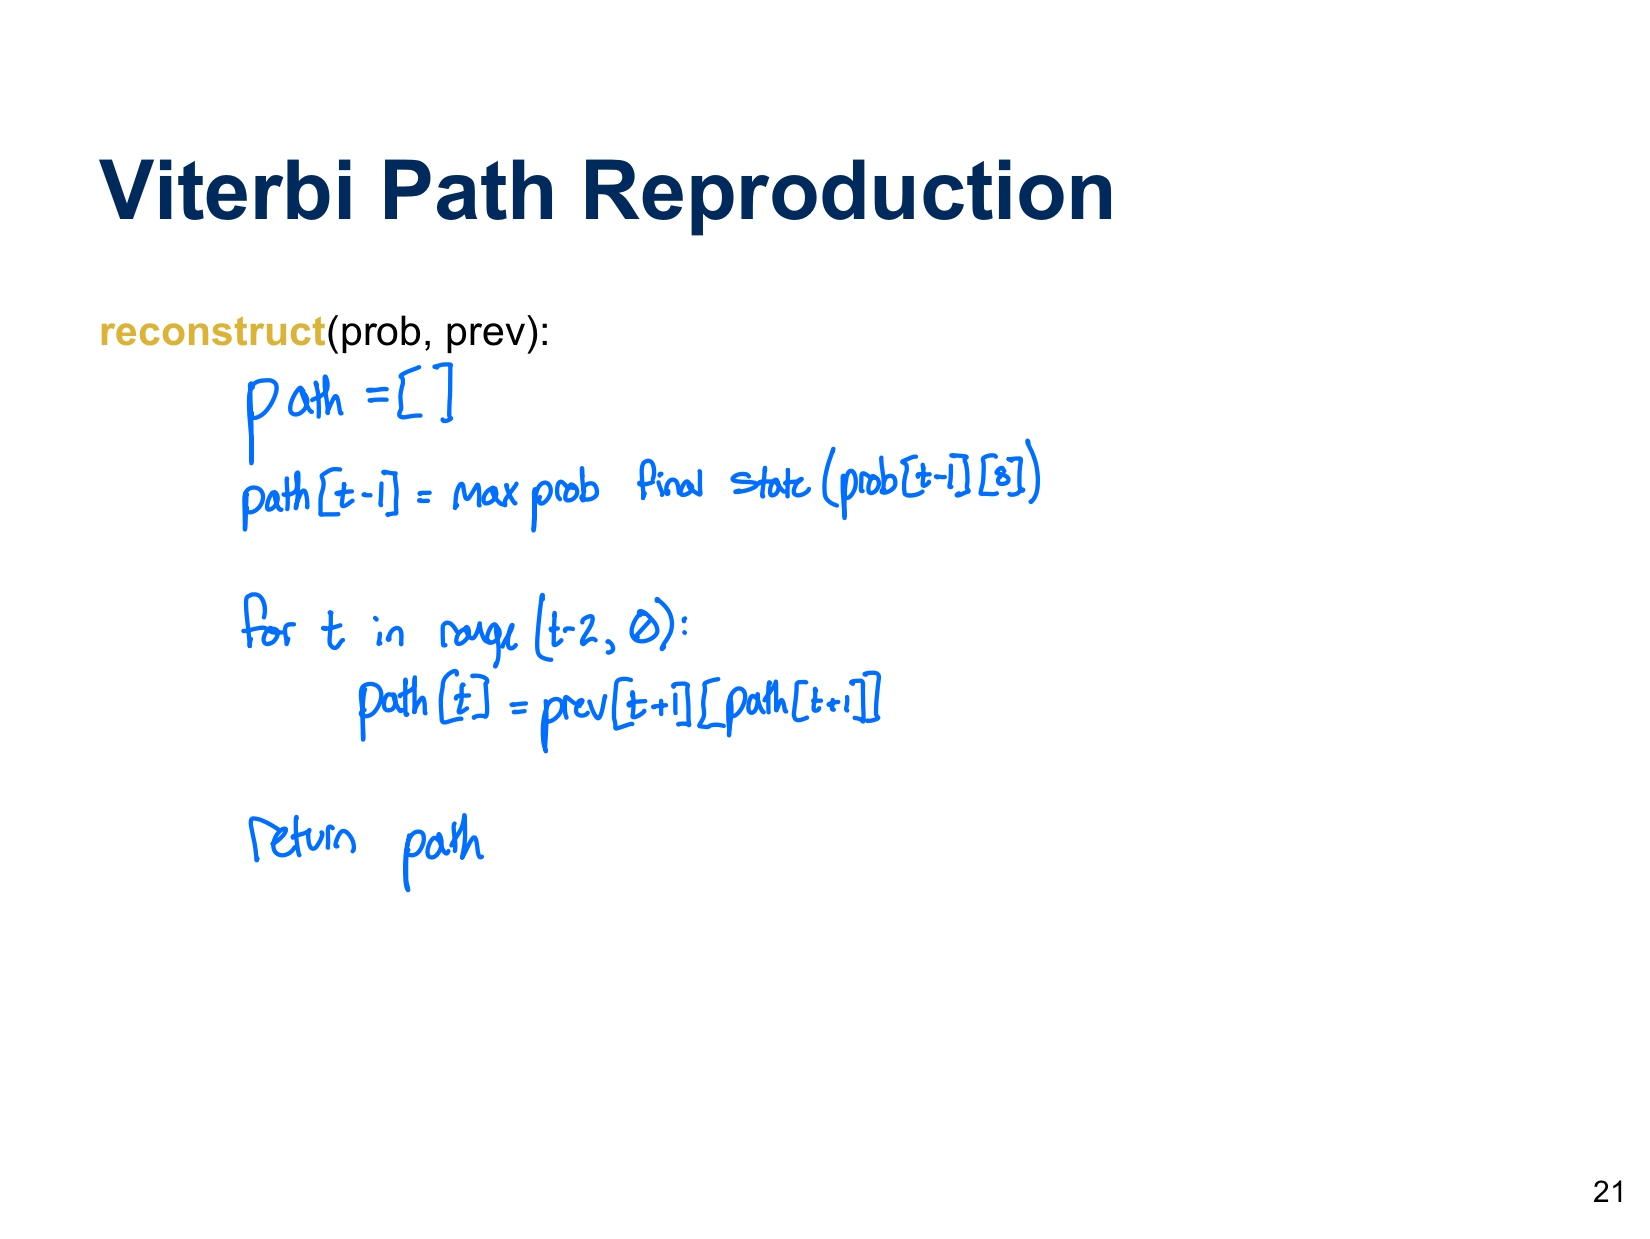 Viterbi Path Reproduction
reconstruct(prob, prev):
path = [ ]
path[t-1] = max prob final state (prob[t-1][s])
for t in range (t-2, 0):
path[t] = prev[t+1][path[t+1]]
return path
21